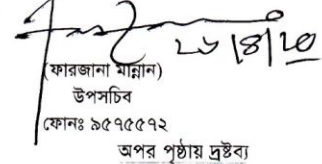 ২৬|৪|২০
(ফারজানা মান্নান)
উপসচিব
ফোনঃ ৯৫৭৫৫৭২
অপর পৃষ্ঠায় দ্রষ্টব্য